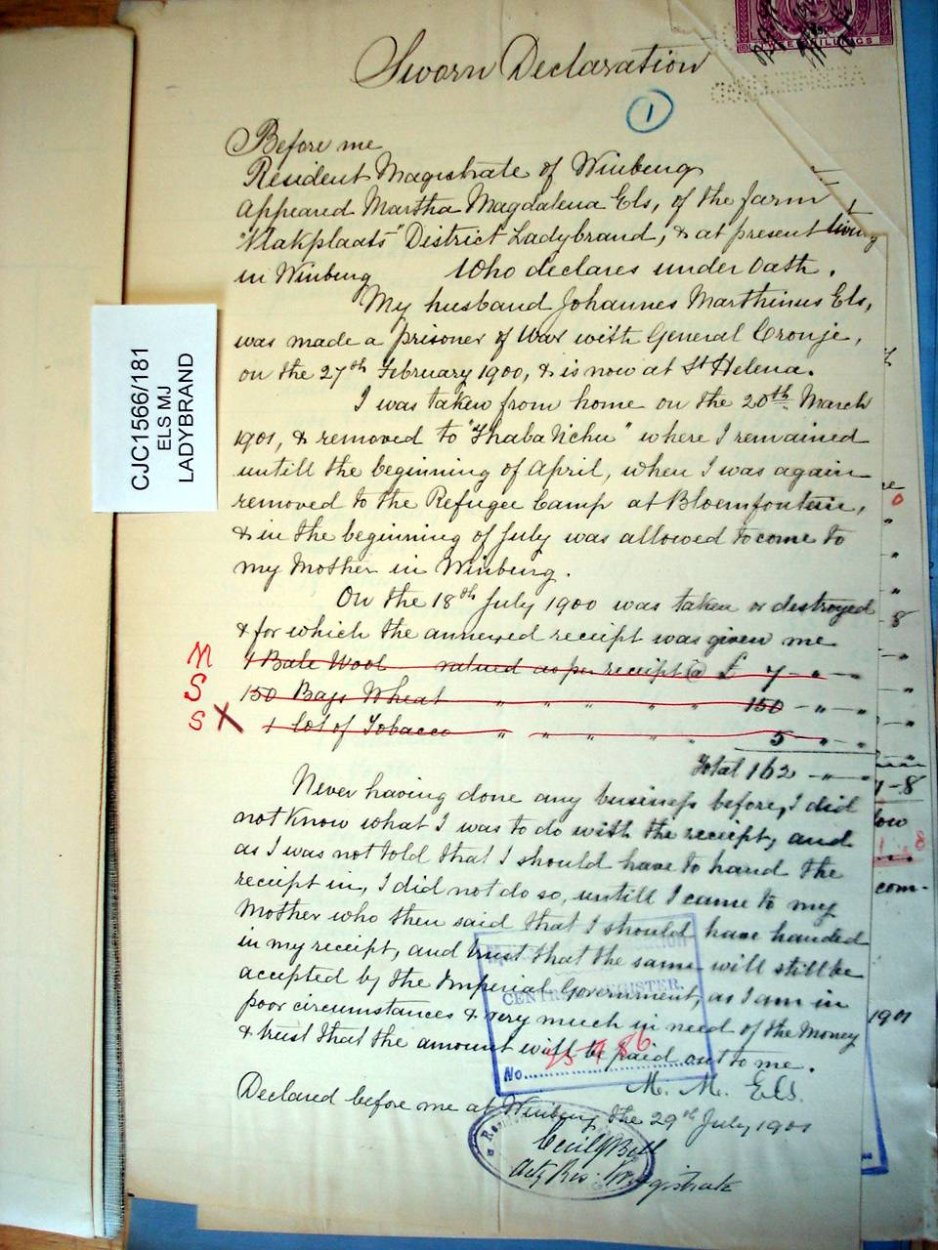 Sworn Declaration
1
Before me
Resident Magistrate of Winburg
Appeared Martha Magdalena Els, of the farm
"Vlakplaats" District Ladybrand, & at present living
in Winburg Who declares under Oath.
My husband Johannes Marthinus Els,
was made a prisoner of War with General Cronje,
on the 27th February 1900, & is now at St Helena.
I was taken from home on the 20th March
1901, & removed to "Thaba Nchu" where I remained
untill the beginning of April, when I was again
removed to the Refugee Camp at Bloemfontein,
& in the beginning of July was allowed to come to
my Mother in Winburg.
On the 18th July 1900 was taken or destroyed
& for which the annexed receipt was given me
M 1 Bale Wool valued as per receipt @ £ 7 - " -
S 150 Bags Wheat " " " " 150 - " -
S X 1 lot of Tobacco " " " " " 5 " -
Total 162 - " -
Never having done any business before, I did
not know what I was to do with the receipt, and
as I was not told that I should have to hand the
receipt in, I did not do so, untill I came to my
Mother who then said that I should have handed
in my receipt, and trust that the same will still be
accepted by the Imperial Government, as I am in
poor circumstances & very much in need of the money
& trust that the amount will be paid out to me.
M. M. Els.
Declared before me at Winburg the 29th July 1901
Actg Res: Magistrate
CENTRAL REGISTER.
No.
CJC1566/181
ELS MJ
LADYBRAND
8
1-8
low
com-
1901